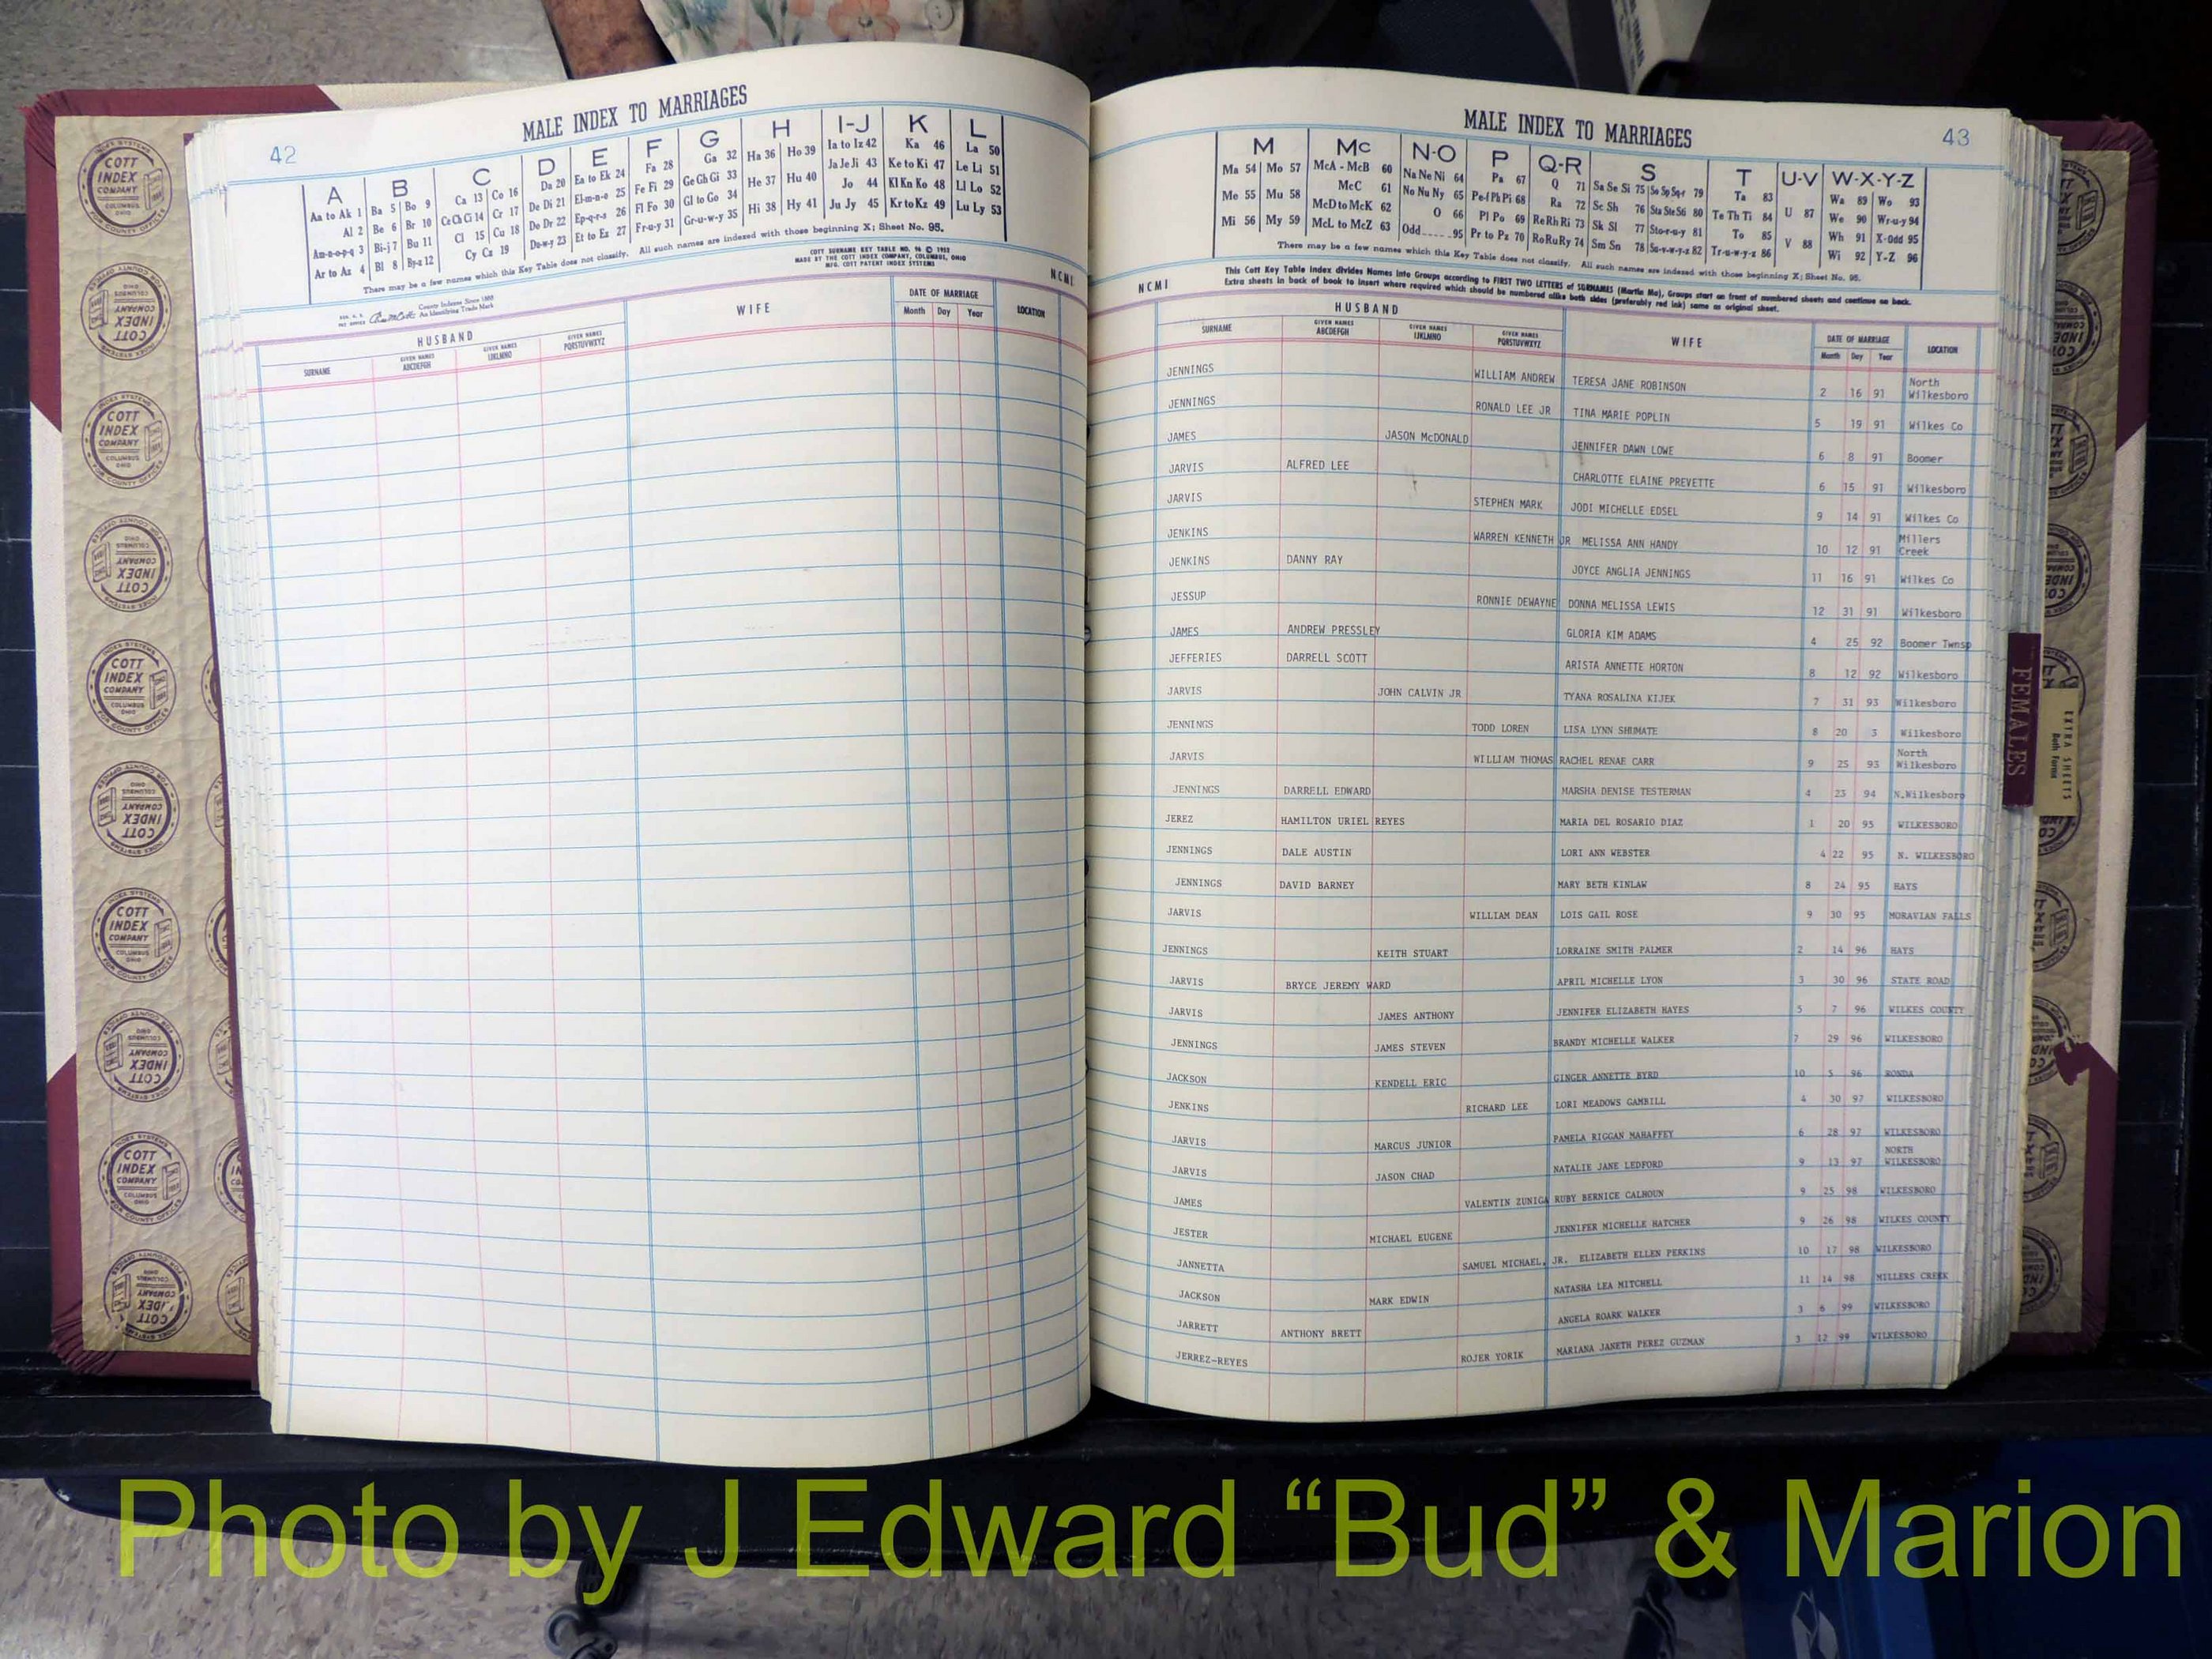 42
MALE INDEX TO MARRIAGES
A B C D E F G H I-J K L
Aa to Ak 1 Ba 5 Bo 9 Ca 13 Co 16 Da 20 Ea to Ek 24 Fa 28 Ga 32 Ha 36 Ho 39 Ia to Iz 42 Ka 46 La 50
Al 2 Be 6 Br 10 Ce Ch Ci 14 Cr 17 De Di 21 El-m-n-o 25 Fe Fi 29 Ge Gh Gi 33 He 37 Hu 40 Ja Je Ji 43 Ke to Ki 47 Le Li 51
Am-n-o-p-q 3 Bi-j 7 Bu 11 Cl 15 Cu 18 Do Dr 22 Ep-q-r-s 26 Fl Fo 30 Gl to Go 34 Hi 38 Hy 41 Jo 44 Kl Kn Ko 48 Ll Lo 52
Ar to Az 4 Bl 8 By-z 12 Cy Cz 19 Du-w-y 23 Et to Ez 27 Fr-u-y 31 Gr-u-w-y 35 Ju Jy 45 Kr to Kz 49 Lu Ly 53
There may be a few names which this Key Table does not classify. All such names are indexed with those beginning X; Sheet No. 95.
COTT SURNAME KEY TABLE NO. 96 © 1952
MADE BY THE COTT INDEX COMPANY, COLUMBUS, OHIO
MFG. COTT PATENT INDEX SYSTEMS
NCMI
County Indexes Since 1888
An Identifying Trade Mark
HUSBAND WIFE DATE OF MARRIAGE LOCATION
SURNAME GIVEN NAMES ABCDEFGH GIVEN NAMES IJKLMNO GIVEN NAMES PQRSTUVWXYZ Month Day Year
MALE INDEX TO MARRIAGES
43
M Mc N-O P Q-R S T U-V W-X-Y-Z
Ma 54 Mo 57 McA - McB 60 Na Ne Ni 64 Pa 67 Q 71 Sa Se Si 75 So Sp Sq-r 79 Ta 83 Wa 89 Wo 93
Me 55 Mu 58 McC 61 No Nu Ny 65 Pe-f Ph Pi 68 Ra 72 Sc Sh 76 Sta Ste Sti 80 Te Th Ti 84 U 87 We 90 Wr-u-y 94
Mi 56 My 59 McD to McK 62 O 66 Pl Po 69 Re Rh Ri 73 Sk Sl 77 Sto-r-u-y 81 To 85 V 88 Wh 91 X-Odd 95
McL to McZ 63 Odd 95 Pr to Pz 70 Ro Ru Ry 74 Sm Sn 78 Su-v-w-y-z 82 Tr-u-w-y-z 86 Wi 92 Y-Z 96
There may be a few names which this Key Table does not classify. All such names are indexed with those beginning X; Sheet No. 95.
NCMI
This Cott Key Table Index divides Names into Groups according to FIRST TWO LETTERS of SURNAMES (Martin Ma), Groups start on front of numbered sheets and continue on back.
Extra sheets in back of book to insert where required which should be numbered alike both sides (preferably red ink) same as original sheet.
HUSBAND WIFE DATE OF MARRIAGE LOCATION
SURNAME GIVEN NAMES ABCDEFGH GIVEN NAMES IJKLMNO GIVEN NAMES PQRSTUVWXYZ Month Day Year
JENNINGS WILLIAM ANDREW TERESA JANE ROBINSON 2 16 91 North Wilkesboro
JENNINGS RONALD LEE JR TINA MARIE POPLIN 5 19 91 Wilkes Co
JAMES JASON McDONALD JENNIFER DAWN LOWE 6 8 91 Boomer
JARVIS ALFRED LEE CHARLOTTE ELAINE PREVETTE 6 15 91 Wilkesboro
JARVIS STEPHEN MARK JODI MICHELLE EDSEL 9 14 91 Wilkes Co
JENKINS WARREN KENNETH JR MELISSA ANN HANDY 10 12 91 Millers Creek
JENKINS DANNY RAY JOYCE ANGLIA JENNINGS 11 16 91 Wilkes Co
JESSUP RONNIE DEWAYNE DONNA MELISSA LEWIS 12 31 91 Wilkesboro
JAMES ANDREW PRESSLEY GLORIA KIM ADAMS 4 25 92 Boomer Twnsp
JEFFERIES DARRELL SCOTT ARISTA ANNETTE HORTON 8 12 92 Wilkesboro
JARVIS JOHN CALVIN JR TYANA ROSALINA KIJEK 7 31 93 Wilkesboro
JENNINGS TODD LOREN LISA LYNN SHUMATE 8 20 3 Wilkesboro
JARVIS WILLIAM THOMAS RACHEL RENAE CARR 9 25 93 North Wilkesboro
JENNINGS DARRELL EDWARD MARSHA DENISE TESTERMAN 4 23 94 N.Wilkesboro
JEREZ HAMILTON URIEL REYES MARIA DEL ROSARIO DIAZ 1 20 95 WILKESBORO
JENNINGS DALE AUSTIN LORI ANN WEBSTER 4 22 95 N. WILKESBORO
JENNINGS DAVID BARNEY MARY BETH KINLAW 8 24 95 HAYS
JARVIS WILLIAM DEAN LOIS GAIL ROSE 9 30 95 MORAVIAN FALLS
JENNINGS KEITH STUART LORRAINE SMITH PALMER 2 14 96 HAYS
JARVIS BRYCE JEREMY WARD APRIL MICHELLE LYON 3 30 96 STATE ROAD
JARVIS JAMES ANTHONY JENNIFER ELIZABETH HAYES 5 7 96 WILKES COUNTY
JENNINGS JAMES STEVEN BRANDY MICHELLE WALKER 7 29 96 WILKESBORO
JACKSON KENDELL ERIC GINGER ANNETTE BYRD 10 5 96 RONDA
JENKINS RICHARD LEE LORI MEADOWS GAMBILL 4 30 97 WILKESBORO
JARVIS MARCUS JUNIOR PAMELA RIGGAN MAHAFFEY 6 28 97 WILKESBORO
JARVIS JASON CHAD NATALIE JANE LEDFORD 9 13 97 NORTH WILKESBORO
JAMES VALENTIN ZUNIGA RUBY BERNICE CALHOUN 9 25 98 WILKESBORO
JESTER MICHAEL EUGENE JENNIFER MICHELLE HATCHER 9 26 98 WILKES COUNTY
JANNETTA SAMUEL MICHAEL, JR. ELIZABETH ELLEN PERKINS 10 17 98 WILKESBORO
JACKSON MARK EDWIN NATASHA LEA MITCHELL 11 14 98 MILLERS CREEK
JARRETT ANTHONY BRETT ANGELA ROARK WALKER 3 6 99 WILKESBORO
JERREZ-REYES ROJER YORIK MARIANA JANETH PEREZ GUZMAN 3 12 99 WILKESBORO
FEMALES
EXTRA SHEETS
Both Forms
COTT INDEX COMPANY
COLUMBUS OHIO
Photo by J Edward “Bud” & Marion